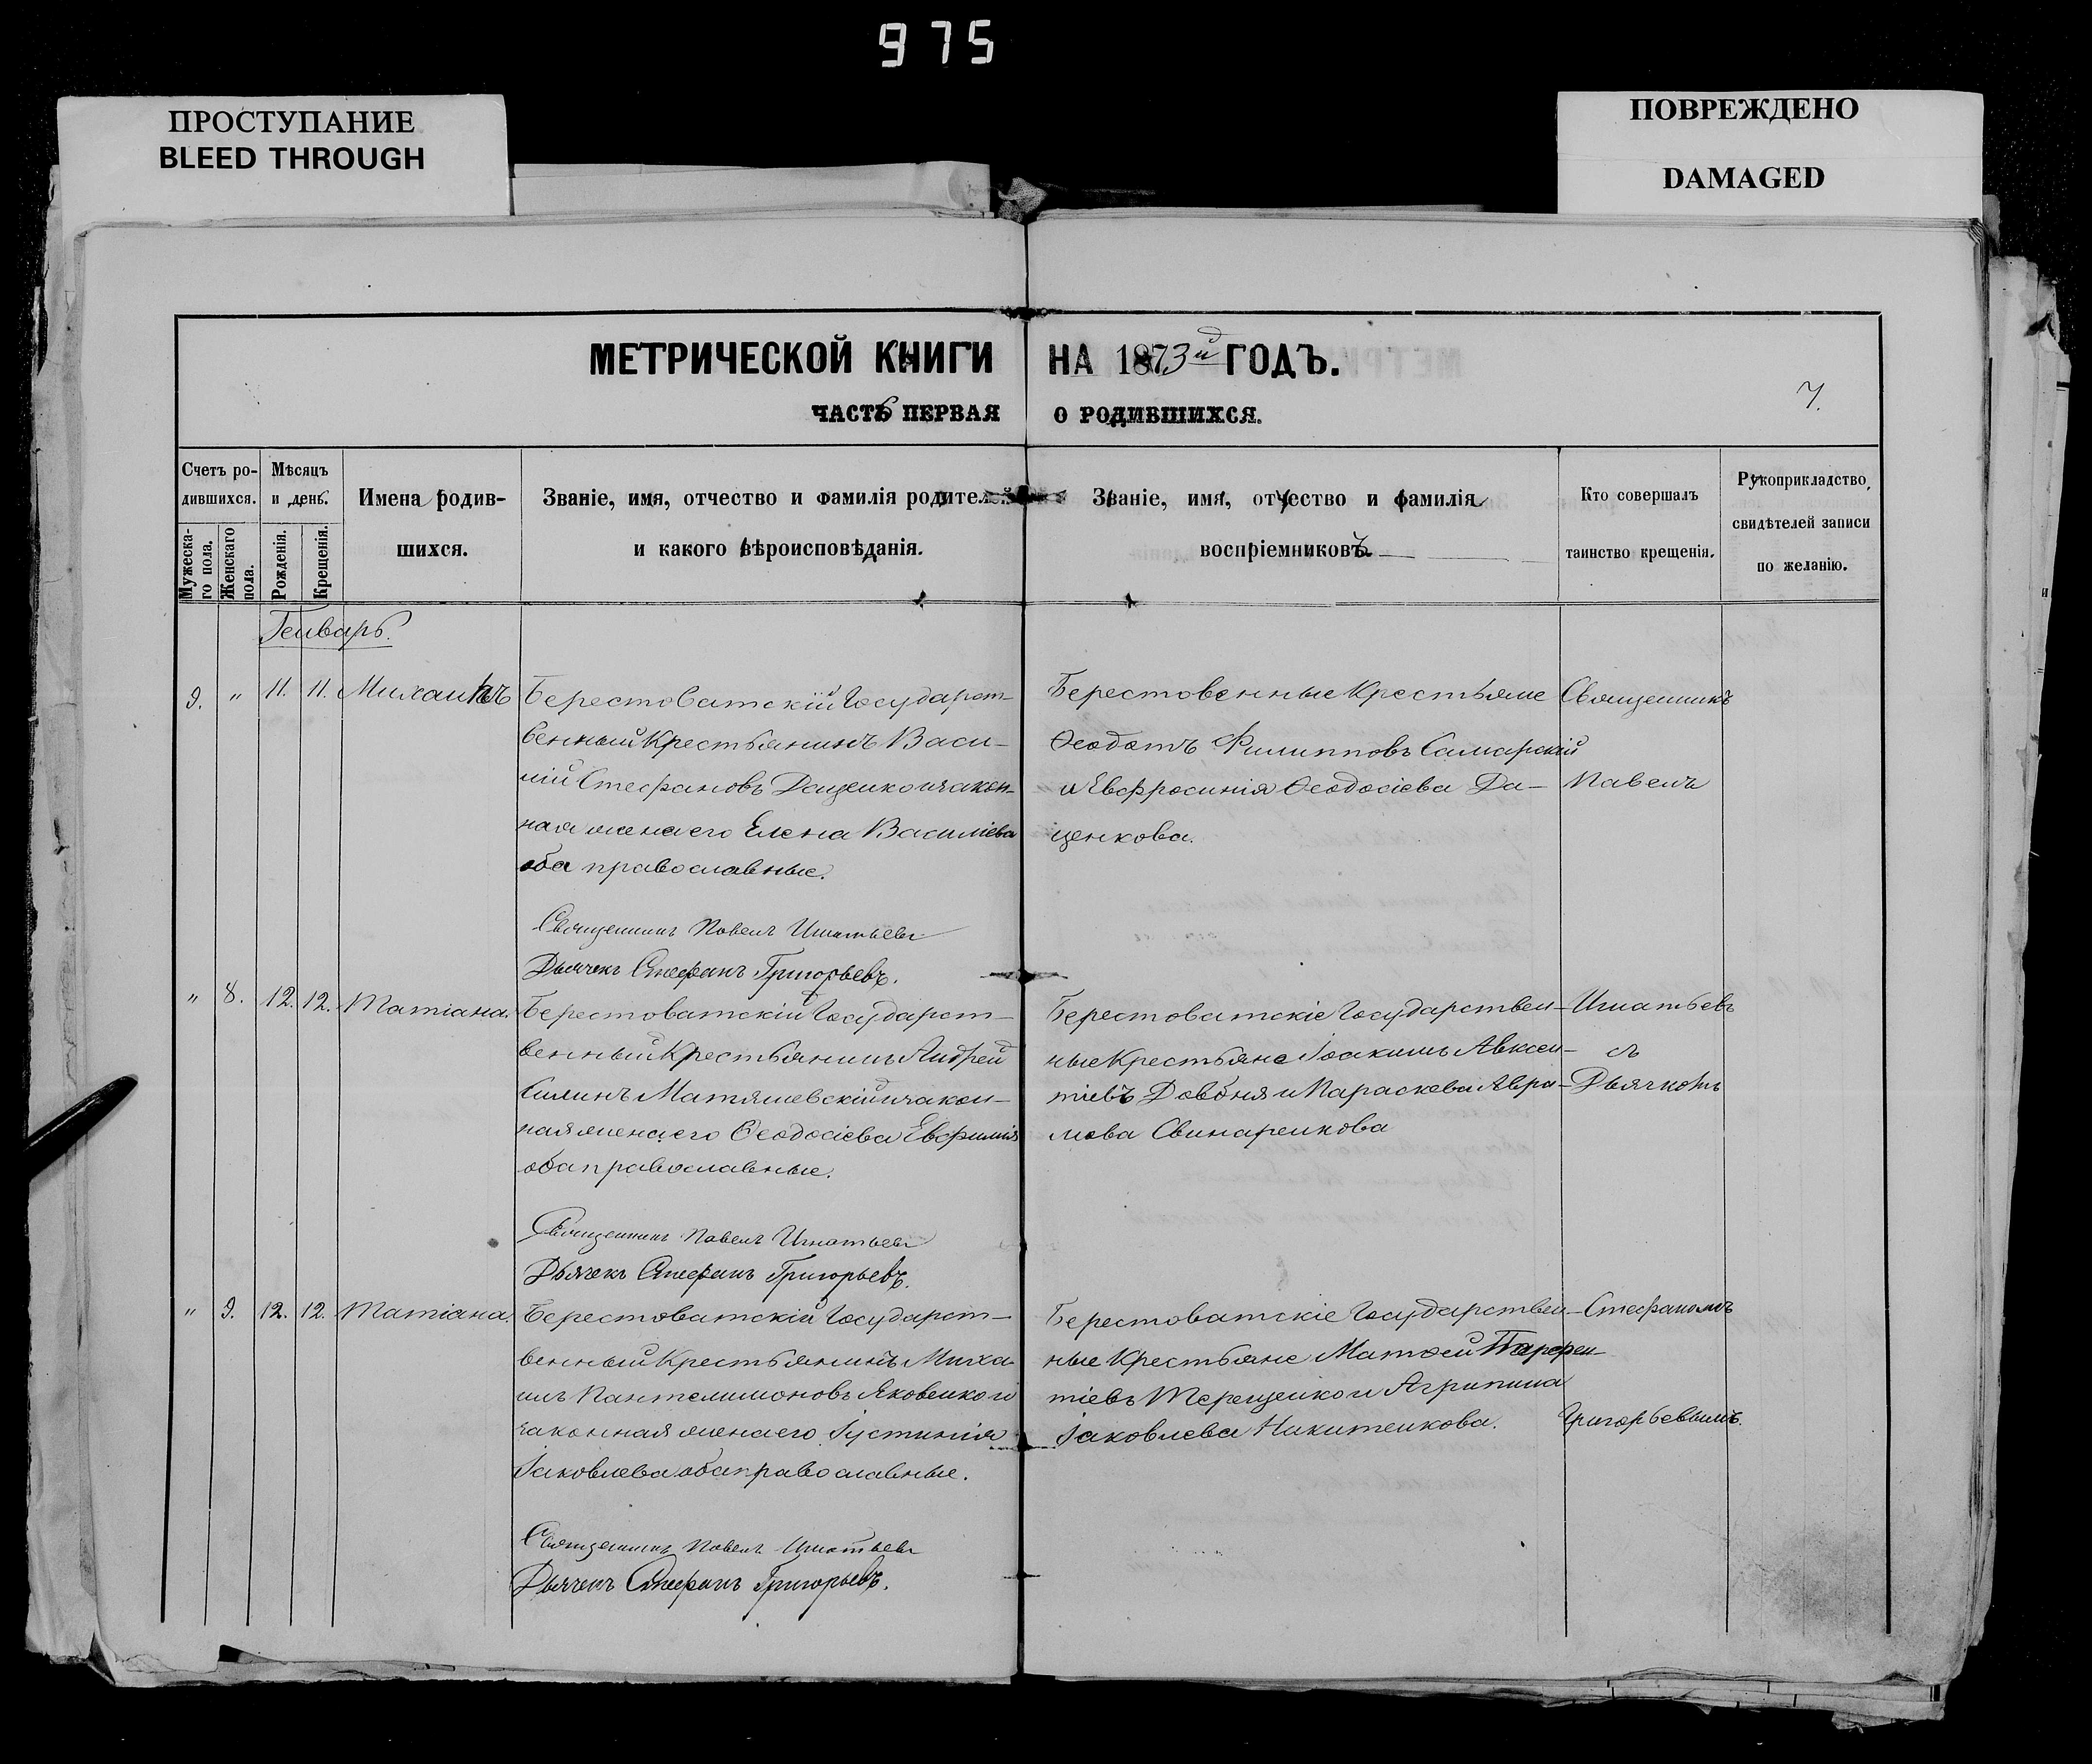 975
ПРОСТУПАНИЕ
BLEED THROUGH
ПОВРЕЖДЕНО
DAMAGED
МЕТРИЧЕСКОЙ КНИГИ НА 1873й ГОДЪ.
7.
ЧАСТЬ ПЕРВАЯ О РОДИВШИХСЯ.
Счетъ ро-
дившихся.
Мужеска-
го пола.
Женскаго
пола.
Мѣсяцъ
и день.
Рожденія.
Крещенія.
Имена родив-
шихся.
Званіе, имя, отчество и фамилія родителей
и какого вѣроисповѣданія.
Званіе, имя, отчество и фамилія
воспріемниковъ
Кто совершалъ
таинство крещенія.
Рукоприкладство
свидѣтелей записи
по желанію.
Генварь.
9. " 11. 11. Михаилъ
Берестоватскій Государст-
венный Крестьянинъ Васи-
лій Стефановъ Дащенко и закон-
ная жена его Елена Василіева
оба православные.
Священникъ Павелъ Игнатьевъ
Дьячекъ Стефанъ Григорьевъ.
Берестовенные Крестьяне
Ѳеодотъ Филипповъ Самарскій
и Евфросинія Ѳеодосіева Да-
щенкова.
Священникъ
Павелъ
" 8. 12. 12. Татіана.
Берестоватскій Государст-
венный Крестьянинъ Андрей
Симинъ Матяшевскій и закон-
ная жена его Ѳеодосіева Евфимія
оба православные.
Священникъ Павелъ Игнатьевъ
Дьячекъ Стефанъ Григорьевъ.
Берестоватскіе Государствен-
ные Крестьяне Іоакимъ Авксен-
тіевъ Довбня и Параскева Авра-
мова Свинаренкова
Игнатьевъ
съ
Дьячкомъ
" 9. 12. 12. Татіана.
Берестоватскій Государст-
венный Крестьянинъ Миха-
илъ Пантелимоновъ Яковенко и
законная жена его Іустинія
Іаковлева оба православные.
Священникъ Павелъ Игнатьевъ
Дьячекъ Стефанъ Григорьевъ.
Берестоватскіе Государствен-
ные Крестьяне Матѳей Парфен-
тіевъ Терещенко и Агрипина
Іаковлева Никитенкова.
Стефаномъ
Григорьевымъ.